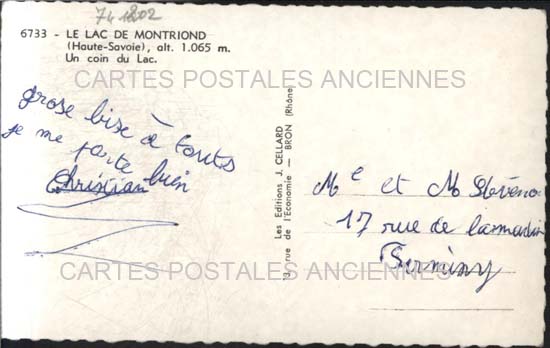 74 1802
6733 - LE LAC DE MONTRIOND
(Haute-Savoie), alt. 1.065 m.
Un coin du Lac.
CARTES POSTALES ANCIENNES
grose bise à touts
je me porte bien
Christian
Les Editions J. CELLARD
13, rue de l'Economie — BRON (Rhône)
Me et M Stéveno
17 rue de lamartin
Firminy
CARTES POSTALES ANCIENNES